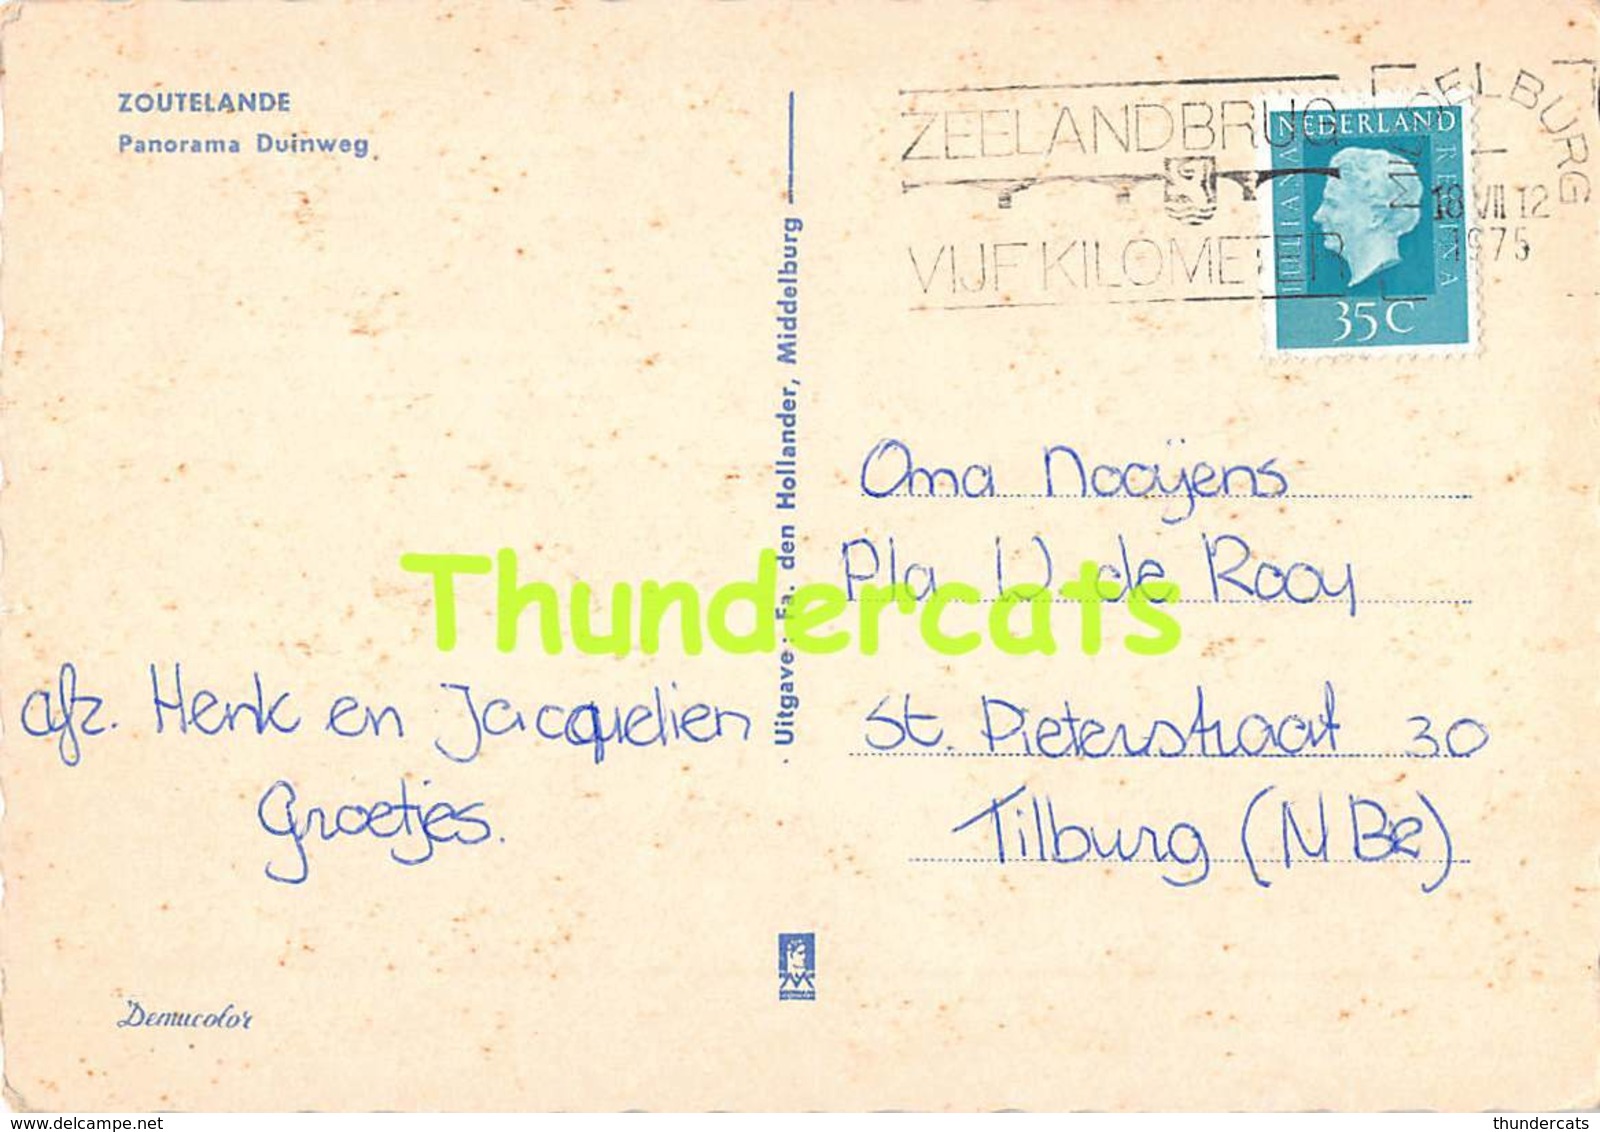 ZOUTELANDE
Panorama Duinweg
ZEELANDBRUG
VIJF KILOMETER
MIDDELBURG
18 VII 12
1975
NEDERLAND
JULIANA
REGINA
35 C
Uitgave: Fa. den Hollander, Middelburg
Oma Nooijens
P/a W de Rooy
St. Pieterstraat 30
Tilburg (N Br)
Thundercats
afz. Henk en Jacquelien
Groetjes.
Demucolor
www.delcampe.net
thundercats